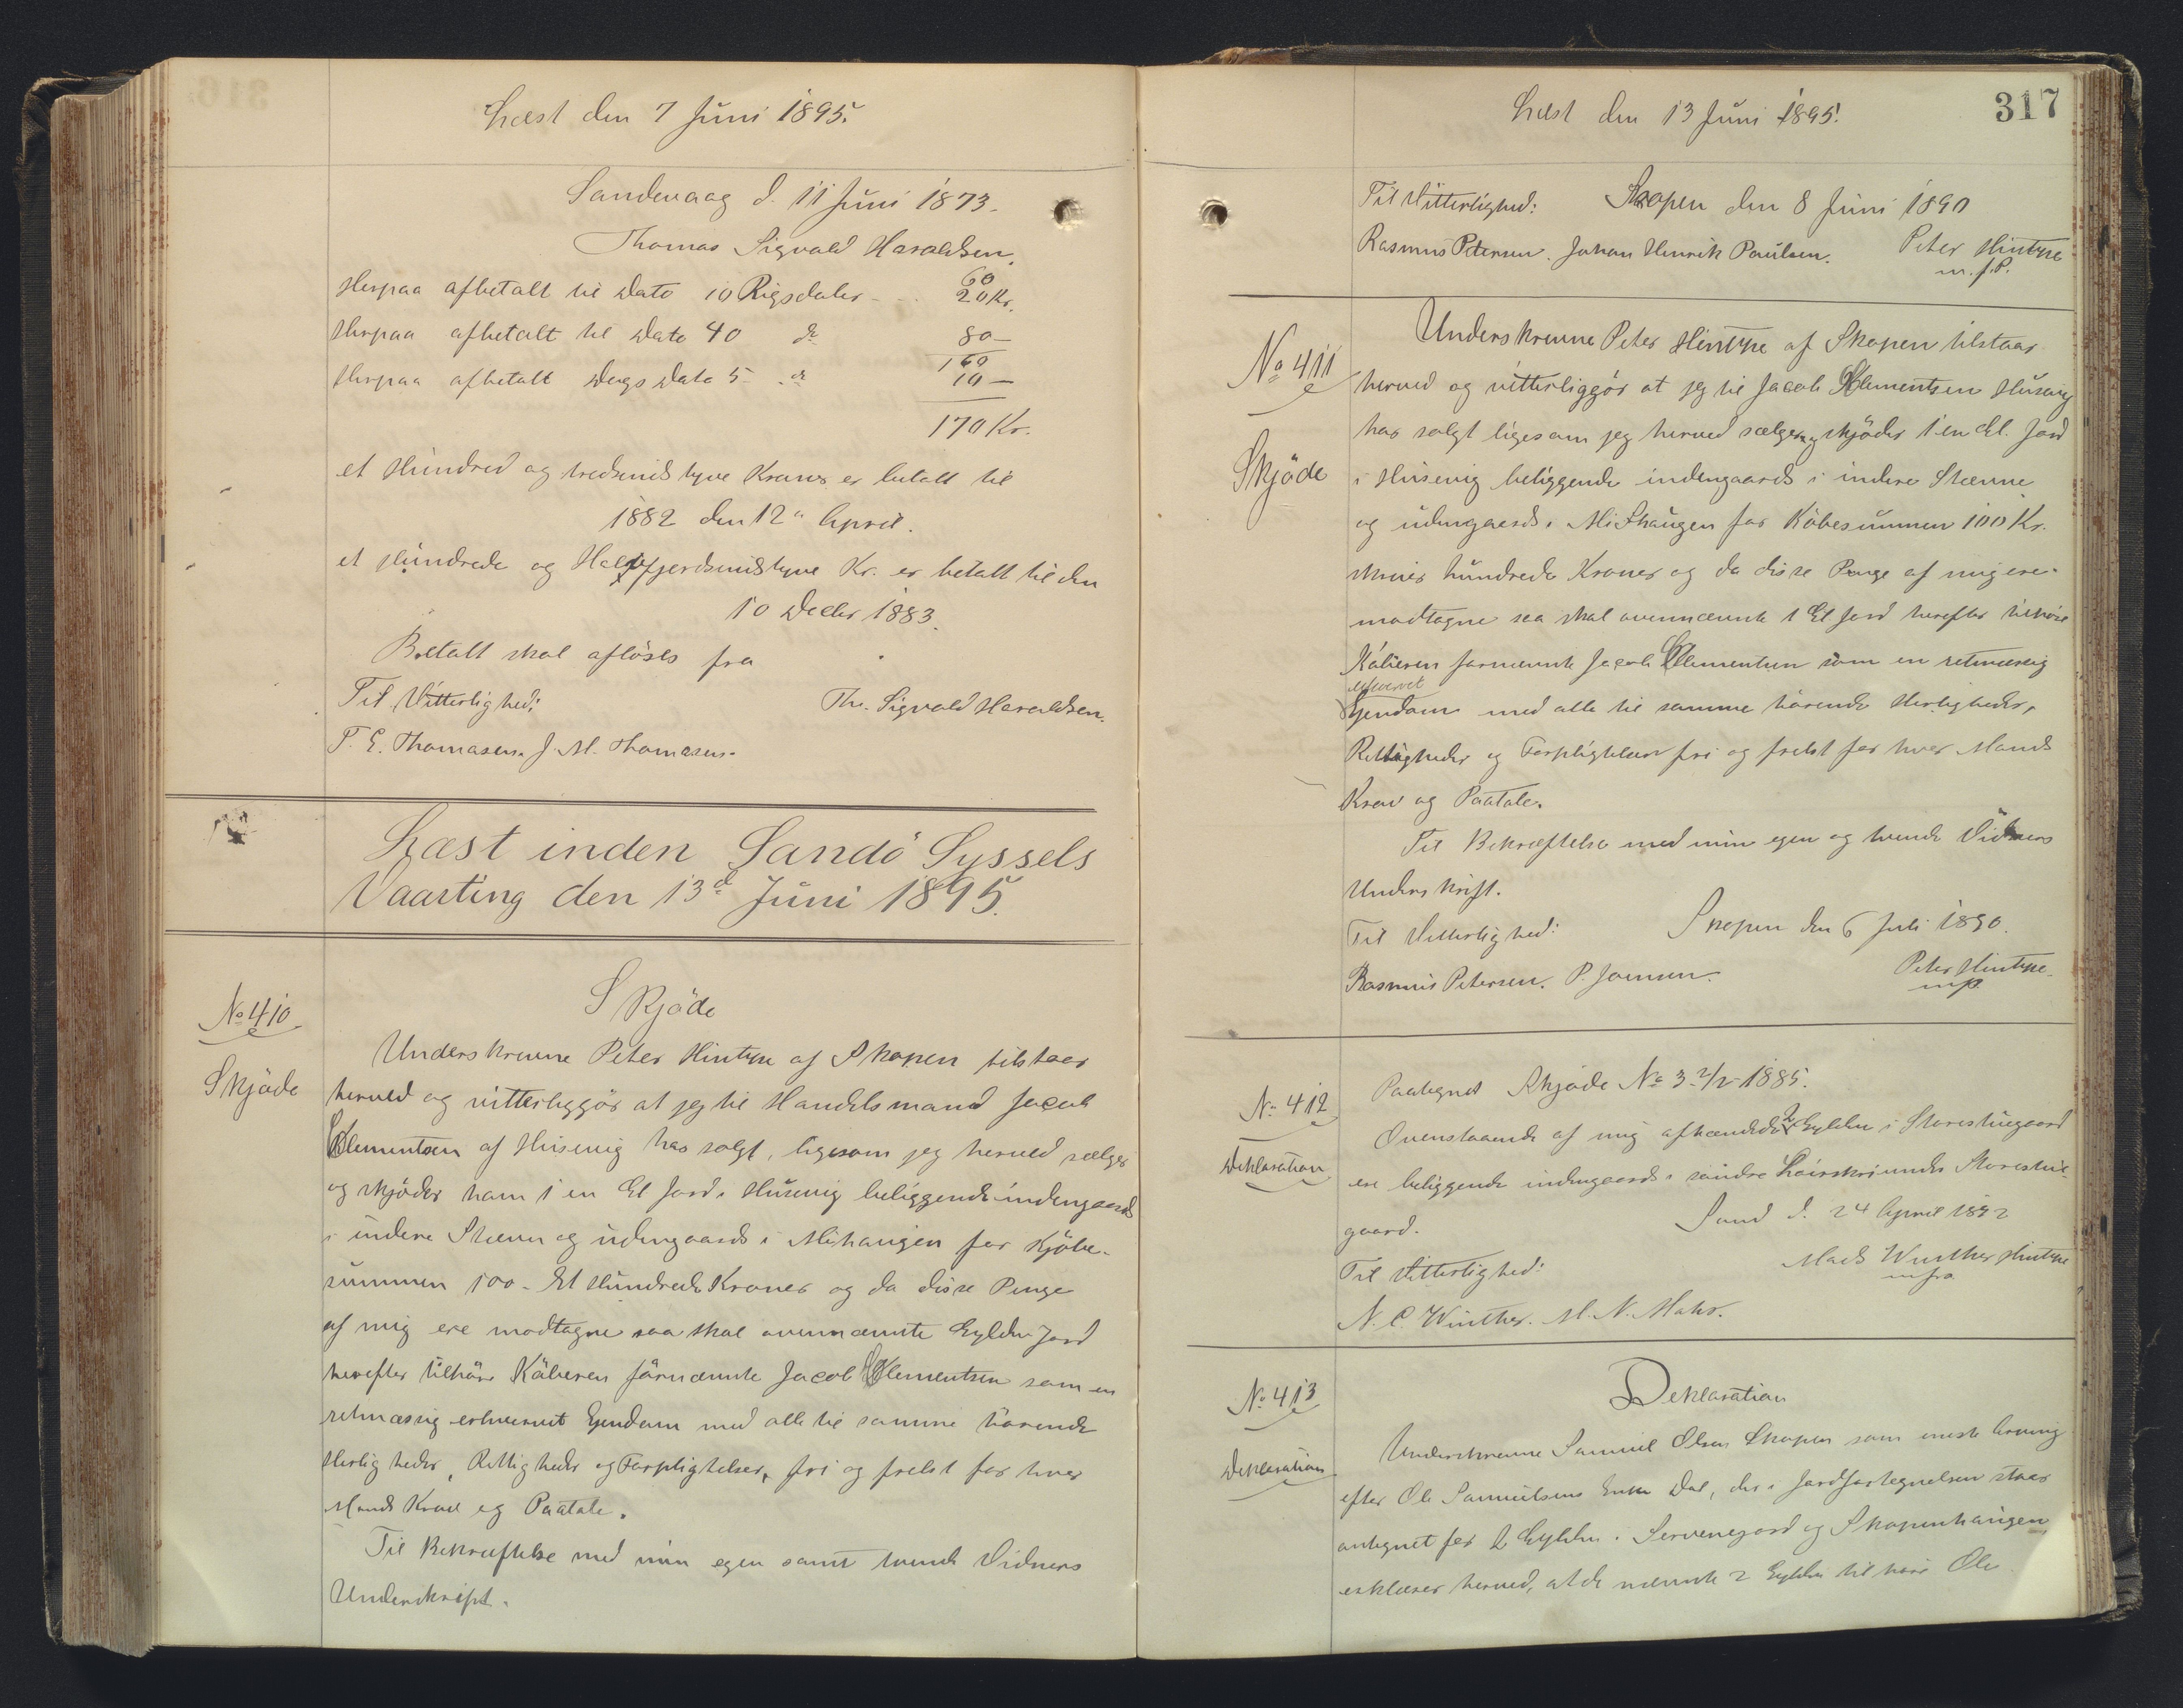 Læst den 7 Juni 1895.
Sandevaag d. 11 Juni 1873.
Thomas Sigvald Haraldsen.
Herpaa afbetalt til Dato 10 Rigsdaler - 60 20 Kr.
Herpaa afbetalt til Dato 40 do 80 -
160
Herpaa afbetalt Dags Dato 5 - do 10 -
170 Kr.
et Hundred og tredsinds tyve Kroner er betalt til
1882 den 12 April.
et Hundrede og Halvfjerdsindstyve Kr. er betalt til den
10 Decbr 1883.
Betalt skal aflöses fra
Til Vitterlighed:
Th. Sigvald Haraldsen.
P. E. Thomasen. J. M. Thomasen.
Læst inden Sandö Syssels
Vaarting den 13d Juni 1895.
No 410
Skjöde
Skjöde
Underskrevne Peter Hintze af Skopen tilstaar
herved og vitterliggör at jeg til Handelsmand Jacob
Clementsen af Husevig har solgt, ligesom jeg herved sælger
og skjöder ham 1 en Gl Jord i Husevig beliggende indengaards
i indere Stævne og udengaards i Mihaugen for Kjöbe-
summen 100 - Et Hundrede Kroner og da disse Penge
af mig ere modtagne saa skal ovennævnte Gylden Jord
herefter tilhöre Köberen förnævnte Jacob Clementsen som en
retmæssig erhvervet Ejendom med alle til samme hörende
Herligheder, Rettigheder og Forpligtelser, fri og frelst for hver
Mands Krav og Paatale.
Til Bekræftelse med min egen samt tvende Vidners
Underskript.
317
Læst den 13 Juni 1895.
Til Vitterlighed: Skopen den 8 Juni 1890
Rasmus Petersen. Johan Henrik Poulsen. Peter Hintze
m. f. P.
No 411
Skjöde
Underskrevne Peter Hintze af Skopen tilstaar
herved og vitterliggör at jeg til Jacob Klementsen Husevig
har solgt ligesom jeg herved sælger og skjöder 1 en Gl. Jord
i Husevig beliggende indengaards i indere Stævne
og udengaards i Mishaugen for Köbesummen 100 Kr.
skriver hundrede Kroner og da disse Penge af mig ere
modtagne saa skal ovennævnte 1 Gl Jord herefter tilhöre
Köberen fornævnte Jacob Clementsen som en retmæssig
erhvervet
Ejendom med alle til samme hörende Herligheder,
Rettigheder og Forpligtelser fri og frelst for hver Mands
Krav og Paatale.
Til Bekræftelse med min egen og tvende Vidners
Underskrift.
Til Vitterlighed: Skopen den 6 Juli 1890.
Rasmus Petersen. P. Joensen. Peter Hintze
mp
No 412
Deklaration
Paategnet Skjöde No 3 2/2 1885.
Ovenstaaende af mig afhændede 2 Gylden i Storestuegaard
ere beliggende indengaards i söndre Leirskri under Storestue-
gaard.
Sand d. 24 April 1892
Til Vitterlighed: Mads Winther Hintze
N. C. Winther. M. N. Mohr.
No 413
Deklaration
Deklaration
Underskrevne Samuel Olsen Skopen som eneste Arving
efter Ole Samuelsens Enke Dal, der i Jordfortegnelsen staar
antegnet for 2 Gylden i Servenegard og Skopenhaugen
erklærer herved, at de nævnte 2 Gylden tilhöre Ole